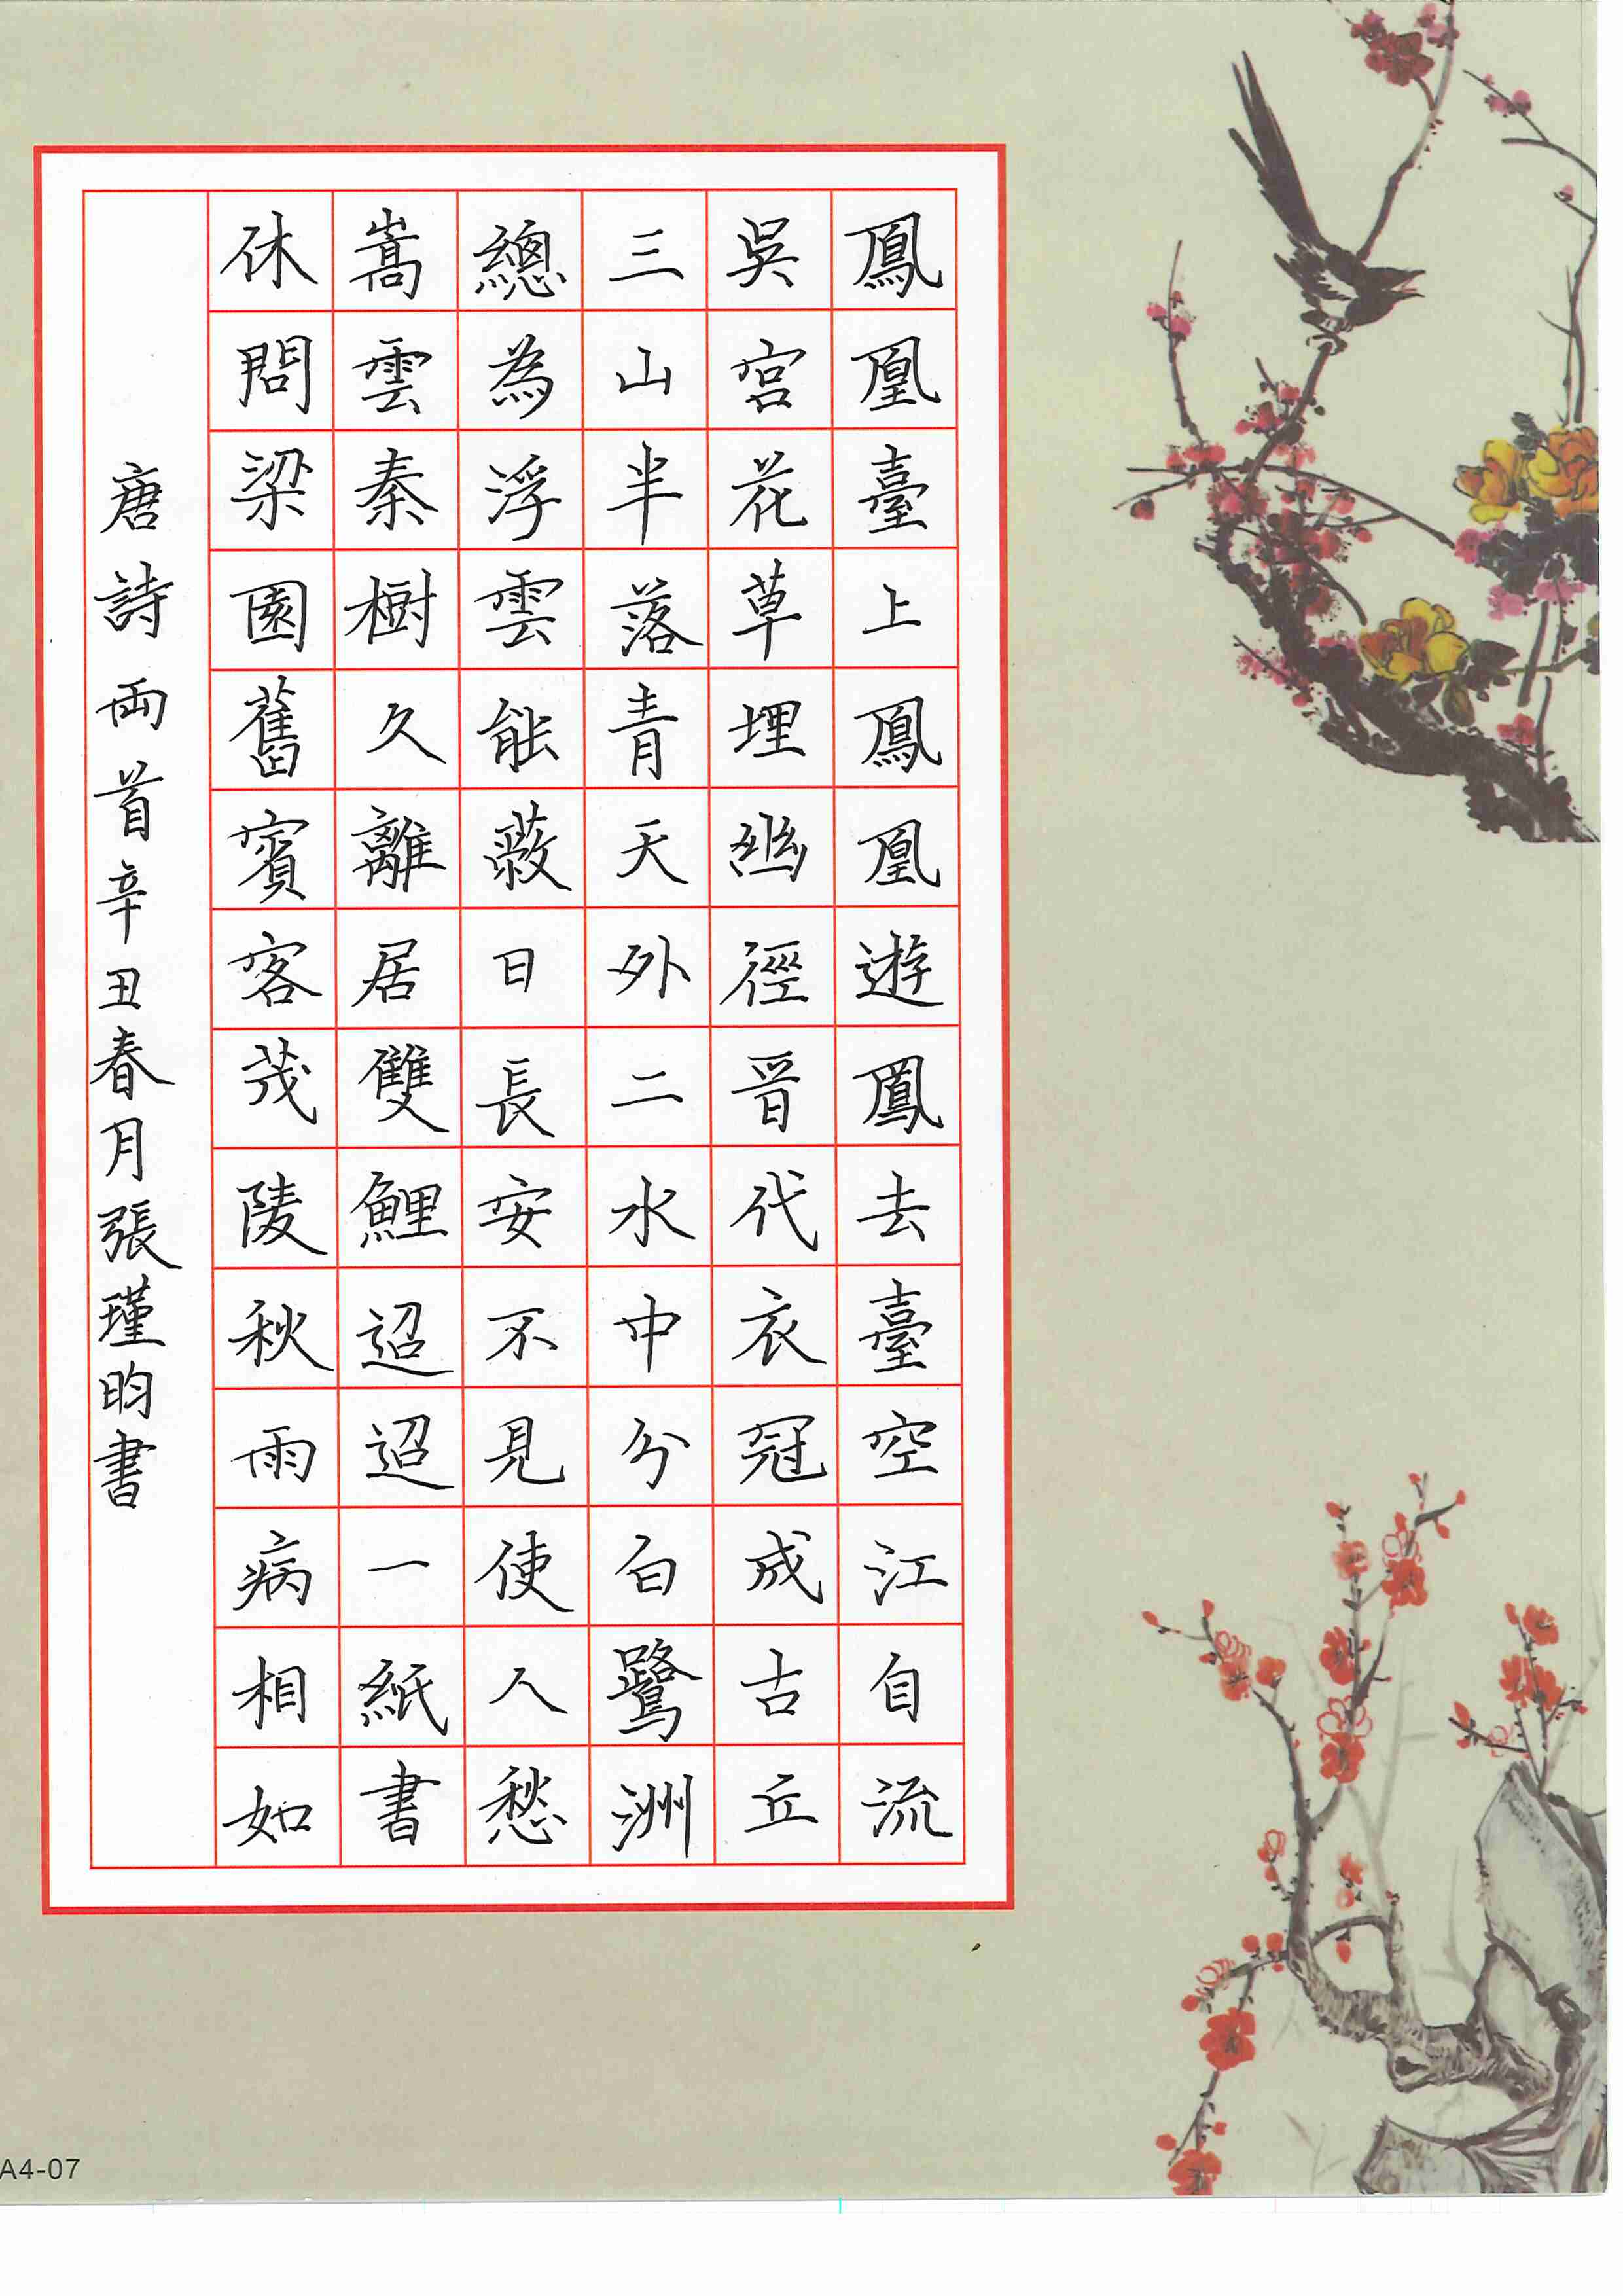 鳳凰臺上鳳凰遊鳳去臺空江自流
吳宮花草埋幽徑晉代衣冠成古丘
三山半落青天外二水中分白鷺洲
總為浮雲能蔽日長安不見使人愁
嵩雲秦樹久離居雙鯉迢迢一紙書
休問梁園舊賓客茂陵秋雨病相如
唐詩兩首辛丑春月張瑾昀書
A4-07